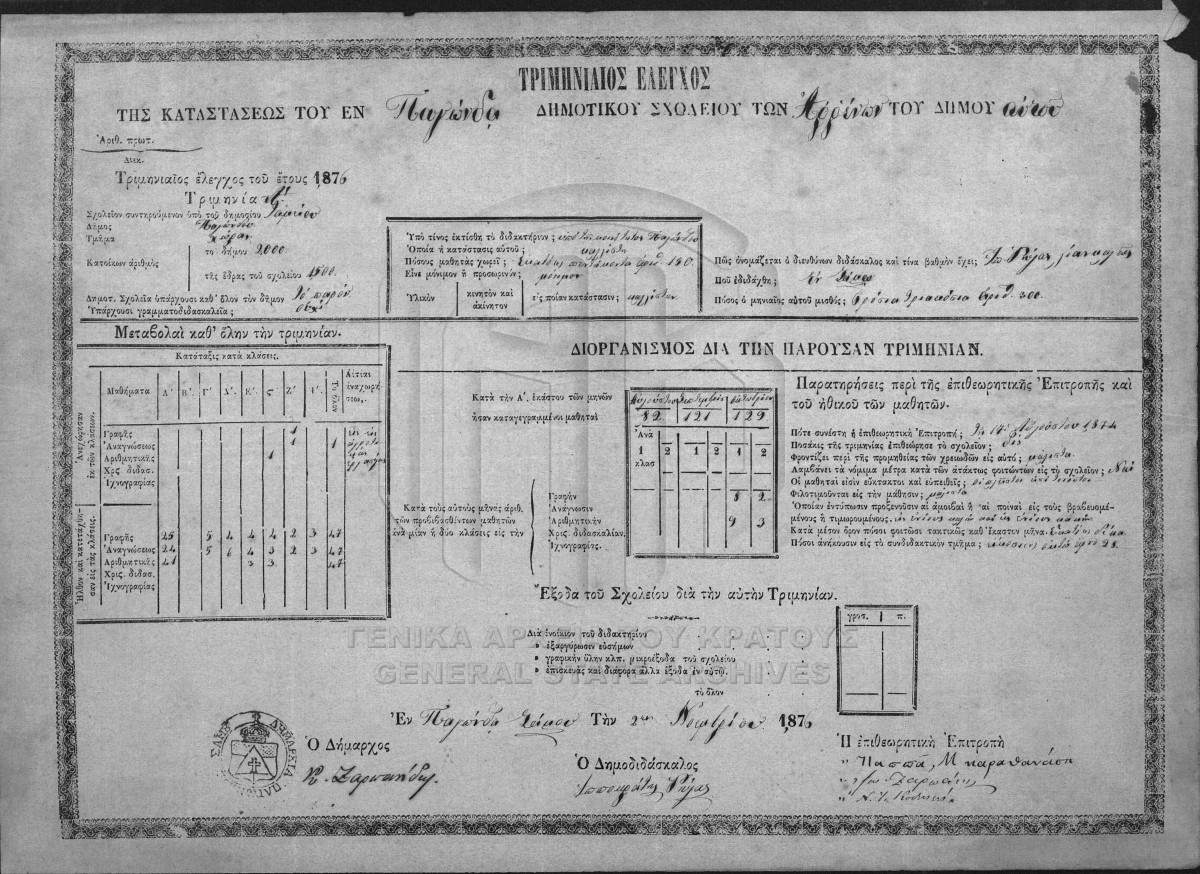 ΤΡΙΜΗΝΙΑΙΟΣ ΕΛΕΓΧΟΣ
ΤΗΣ ΚΑΤΑΣΤΑΣΕΩΣ ΤΟΥ ΕΝ Παγώνδᾳ ΔΗΜΟΤΙΚΟΥ ΣΧΟΛΕΙΟΥ ΤΩΝ Ἀῤῥένων ΤΟΥ ΔΗΜΟΥ αὐτοῦ
Ἀριθ. πρωτ.
Διεκ.
Τριμηνιαῖος ἔλεγχος τοῦ ἔτους 1876
Τριμηνία Α΄.
Σχολεῖον συντηρούμενον ὑπὸ τοῦ δημοσίου Ταμείου
Δῆμος Παγώνδου
Τμῆμα Χώρας
Κατοίκων ἀριθμὸς
τοῦ δήμου 2000
τῆς ἕδρας τοῦ σχολείου 1500
Δημοτ. Σχολεῖα ὑπάρχουσι καθ' ὅλον τὸν δῆμον Τὸ παρόν
Ὑπάρχουσι γραμματοδιδασκαλεῖα; ὄχι
Ὑπὸ τίνος ἐκτίσθη τὸ διδακτήριον; ὑπὸ τῆς κοινότητος Παγώνδου
Ὁποία ἡ κατάστασις αὐτοῦ; καλλίστη
Πόσους μαθητὰς χωρεῖ; Ἑκατὸν πεντήκοντα ἀριθ. 150.
Εἶνε μόνιμον ἢ προσωρινόν; μόνιμον
Ὑλικὸν κινητὸν καὶ ἀκίνητον εἰς ποίαν κατάστασιν; καλλίστην
Πῶς ὀνομάζεται ὁ διευθύνων διδάσκαλος καὶ τίνα βαθμὸν ἔχει;
Ποῦ ἐδιδάχθη; Ἐν Σάμῳ
Πόσος ὁ μηνιαῖος αὐτοῦ μισθός; Γρόσια τριακόσια ἀριθ. 300.
Μεταβολαὶ καθ' ὅλην τὴν τριμηνίαν.
Κατάταξις κατὰ κλάσεις.
Μαθήματα Α΄. Β΄. Γ΄. Δ΄. Ε΄. ς΄ Ζ΄ Η΄. Τὸ ὅλον Αἰτίαι ἀναχωρήσεως.
Ἀνεχώρησαν ἐκ τῶν κλάσεων.
Γραφῆς 1
Ἀναγνώσεως 1 1
Ἀριθμητικῆς 1
Χρς. διδασ.
Ἰχνογραφίας
Ἦλθον καὶ κατετάχθησαν εἰς τὰς κλάσεις.
Γραφῆς 25 5 4 4 4 2 3 47
Ἀναγνώσεως 24 5 6 4 3 2 3 47
Ἀριθμητικῆς 41 3 3 47
Χρις. διδασ.
Ἰχνογραφίας
ΔΙΟΡΓΑΝΙΣΜΟΣ ΔΙΑ ΤΗΝ ΠΑΡΟΥΣΑΝ ΤΡΙΜΗΝΙΑΝ.
Κατὰ τὴν Α΄. ἑκάστου τῶν μηνῶν
ἦσαν καταγεγραμμένοι μαθηταὶ
Αὐγούστου Σεπτεμβρίου Ὀκτωβρίου
82 121 129
Ἀνὰ 1 κλασ 2 1 2 1 2
Κατὰ τοὺς αὐτοὺς μῆνας ἀριθ.
τῶν προβιβασθέντων μαθητῶν
ἀνὰ μίαν ἢ δύο κλάσεις εἰς τὴν
Γραφὴν
Ἀνάγνωσιν 8 2
Ἀριθμητικὴν 9 3
Χρις. διδασκαλίαν.
Ἰχνογραφίας.
Παρατηρήσεις περὶ τῆς ἐπιθεωρητικῆς Ἐπιτροπῆς καὶ
τοῦ ἠθικοῦ τῶν μαθητῶν.
Πότε συνέστη ἡ ἐπιθεωρητικὴ Ἐπιτροπή; Τῇ 14 Αὐγούστου 1874
Ποσάκις τῆς τριμηνίας ἐπιθεώρησε τὸ σχολεῖον; δὶς
Φροντίζει περὶ τῆς προμηθείας τῶν χρειωδῶν εἰς αὐτό; μάλιστα
Λαμβάνει τὰ νόμιμα μέτρα κατὰ τῶν ἀτάκτως φοιτώντων εἰς τὸ σχολεῖον; Ναί
Οἱ μαθηταὶ εἰσὶν εὔτακτοι καὶ εὐπειθεῖς;
Φιλοτιμοῦνται εἰς τὴν μάθησιν; μάλιστα
Ὁποίαν ἐντύπωσιν προξενοῦσιν αἱ ἀμοιβαὶ ἢ αἱ ποιναὶ εἰς τοὺς βραβευομένους ἢ τιμωρουμένους.
Κατὰ μέσον ὅρον πόσοι φοιτῶσι τακτικῶς καθ' ἕκαστον μῆνα. Ἑκατὸν δέκα
Πόσοι ἀνήκουσιν εἰς τὸ συνδιδακτικὸν τμῆμα; εἴκοσιν ὀκτὼ ἀριθ 28.
Ἔξοδα τοῦ Σχολείου διὰ τὴν αὐτὴν Τριμηνίαν.
γροσ. π.
Διὰ ἐνοίκιον τοῦ διδακτηρίου
» ἐξαργύρωσιν εὐσήμων
» γραφικὴν ὕλην κλπ. μικροέξοδα τοῦ σχολείου
» ἐπισκευὰς καὶ διάφορα ἄλλα ἔξοδα ἐν αὐτῷ.
τὸ ὅλον
ΓΕΝΙΚΑ ΑΡΧΕΙΑ ΤΟΥ ΚΡΑΤΟΥΣ
GENERAL STATE ARCHIVES
Ἐν Παγώνδᾳ Σάμου Τὴν 2αν Νοεμβρίου 1876
Ὁ Δήμαρχος
Ὁ Δημοδιδάσκαλος
Ἱπποκράτης Ῥήγας
Ἡ ἐπιθεωρητικὴ Ἐπιτροπὴ
Παππᾶ Μ καραθανάση